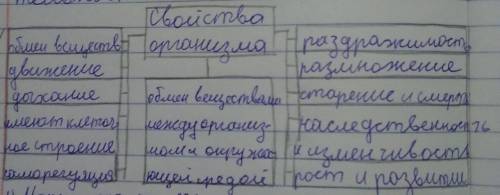 Свойства
организма
обмен веществ
движение
дыхание
имеют клеточ
ное строение
саморегуляция
обмен веществами
между организ-
мом и окружаю
щей средой
раздражимость
размножение
старение и смерть
наследственность
и изменчивость
рост и развитие